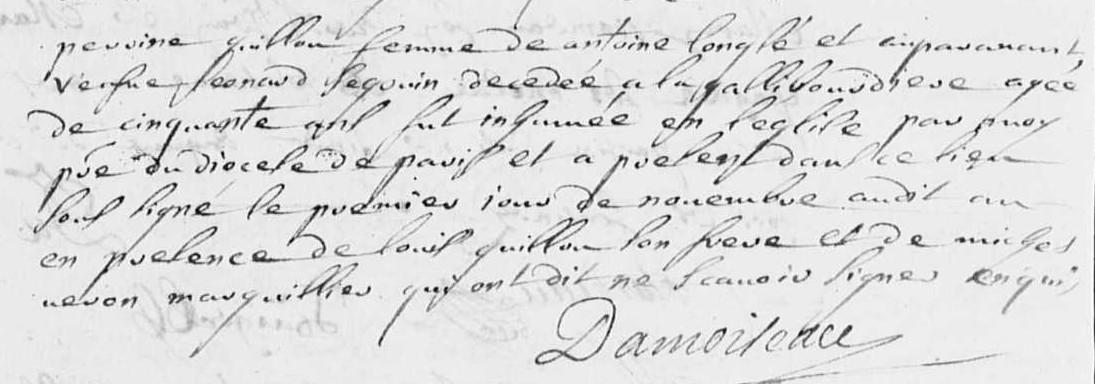 perrine guillou femme de antoine longlé et auparavant
vefue leonard seguin decedée a la gallibourdiere agée
de cinquante ans fut inhumée en leglise par moy
pbre du diocese de paris et a present dans ce lieu
sous signé le premier iour de nouembre audit an
en presence de louis guillou son frere et de michel
neron marguillier qui ont dit ne scauoir signer enquis
Damoiseau